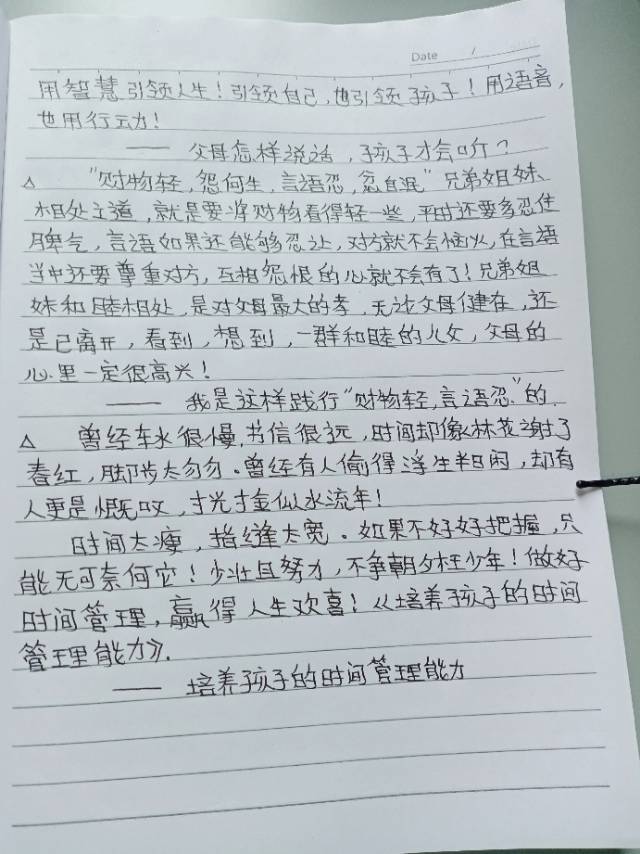 Date /
用智慧引领人生！引领自己，也引领孩子！用语音，
也用行动！
—— 父母怎样说话，孩子才会听？
△ "财物轻，怨何生，言语忍，忿自泯"兄弟姐妹、
相处之道，就是要将财物看得轻一些，平时还要多忍住
脾气，言语如果还能够忍让，对方就不会恼火，在言语
当中还要尊重对方，互相怨恨的心就不会有了！兄弟姐
妹和睦相处，是对父母最大的孝，无论父母健在，还
是已离开，看到，想到，一群和睦的儿女，父母的
心里一定很高兴！
—— 我是这样践行"财物轻，言语忍"的、
△ 曾经车水很慢，书信很远，时间却像林花谢了
春红，脚步太匆匆。曾经有人偷得浮生半日闲，却有
人更是慨叹，寸光寸金似水流年！
时间太瘦，指缝太宽。如果不好好把握，只
能无可奈何它！少壮且努力，不争朝夕枉少年！做好
时间管理，赢得人生欢喜！《培养孩子的时间
管理能力》．
—— 培养孩子的时间管理能力